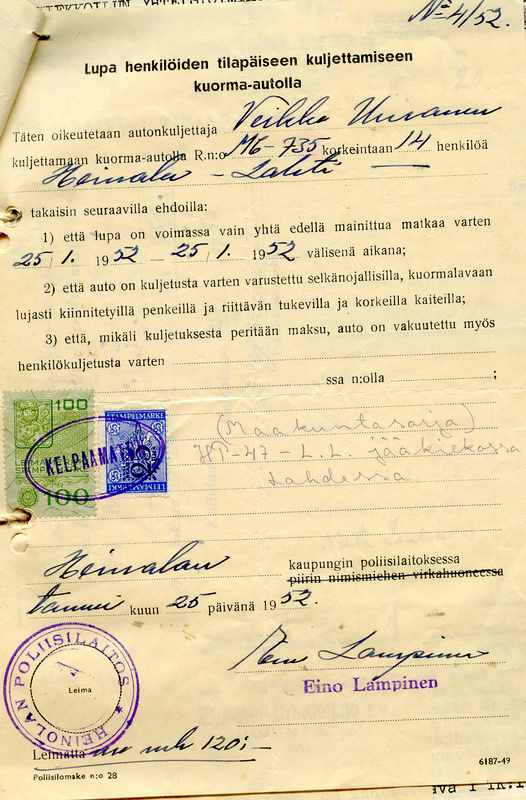 № 4/52.
Lupa henkilöiden tilapäiseen kuljettamiseen
kuorma-autolla
Täten oikeutetaan autonkuljettaja Veikko
kuljettamaan kuorma-autolla R.n:o M6-735 korkeintaan 14 henkilöä
Heinola - Lahti
takaisin seuraavilla ehdoilla:
1) että lupa on voimassa vain yhtä edellä mainittua matkaa varten
25/1. 1952 — 25/1. 1952 välisenä aikana;
2) että auto on kuljetusta varten varustettu selkänojallisilla, kuormalavaan
lujasti kiinnitetyillä penkeillä ja riittävän tukevilla ja korkeilla kaiteilla;
3) että, mikäli kuljetuksesta peritään maksu, auto on vakuutettu myös
henkilökuljetusta varten
ssa n:olla ;
100
STÄMPELMÄRKE
KELPAAMATON
20
100
LEIMAMERKKI
(Maakuntasarja)
HT-47-L.L. jääkiekossa
Lahdessa
Heinolan kaupungin poliisilaitoksessa
piirin nimismiehen virkahuoneessa
tammi kuun 25 päivänä 1952.
Eino Lampinen
Eino Lampinen
HEINOLAN POLIISILAITOS
Leima
Leimatta mk 120:-
Poliisilomake n:o 28
6187-49